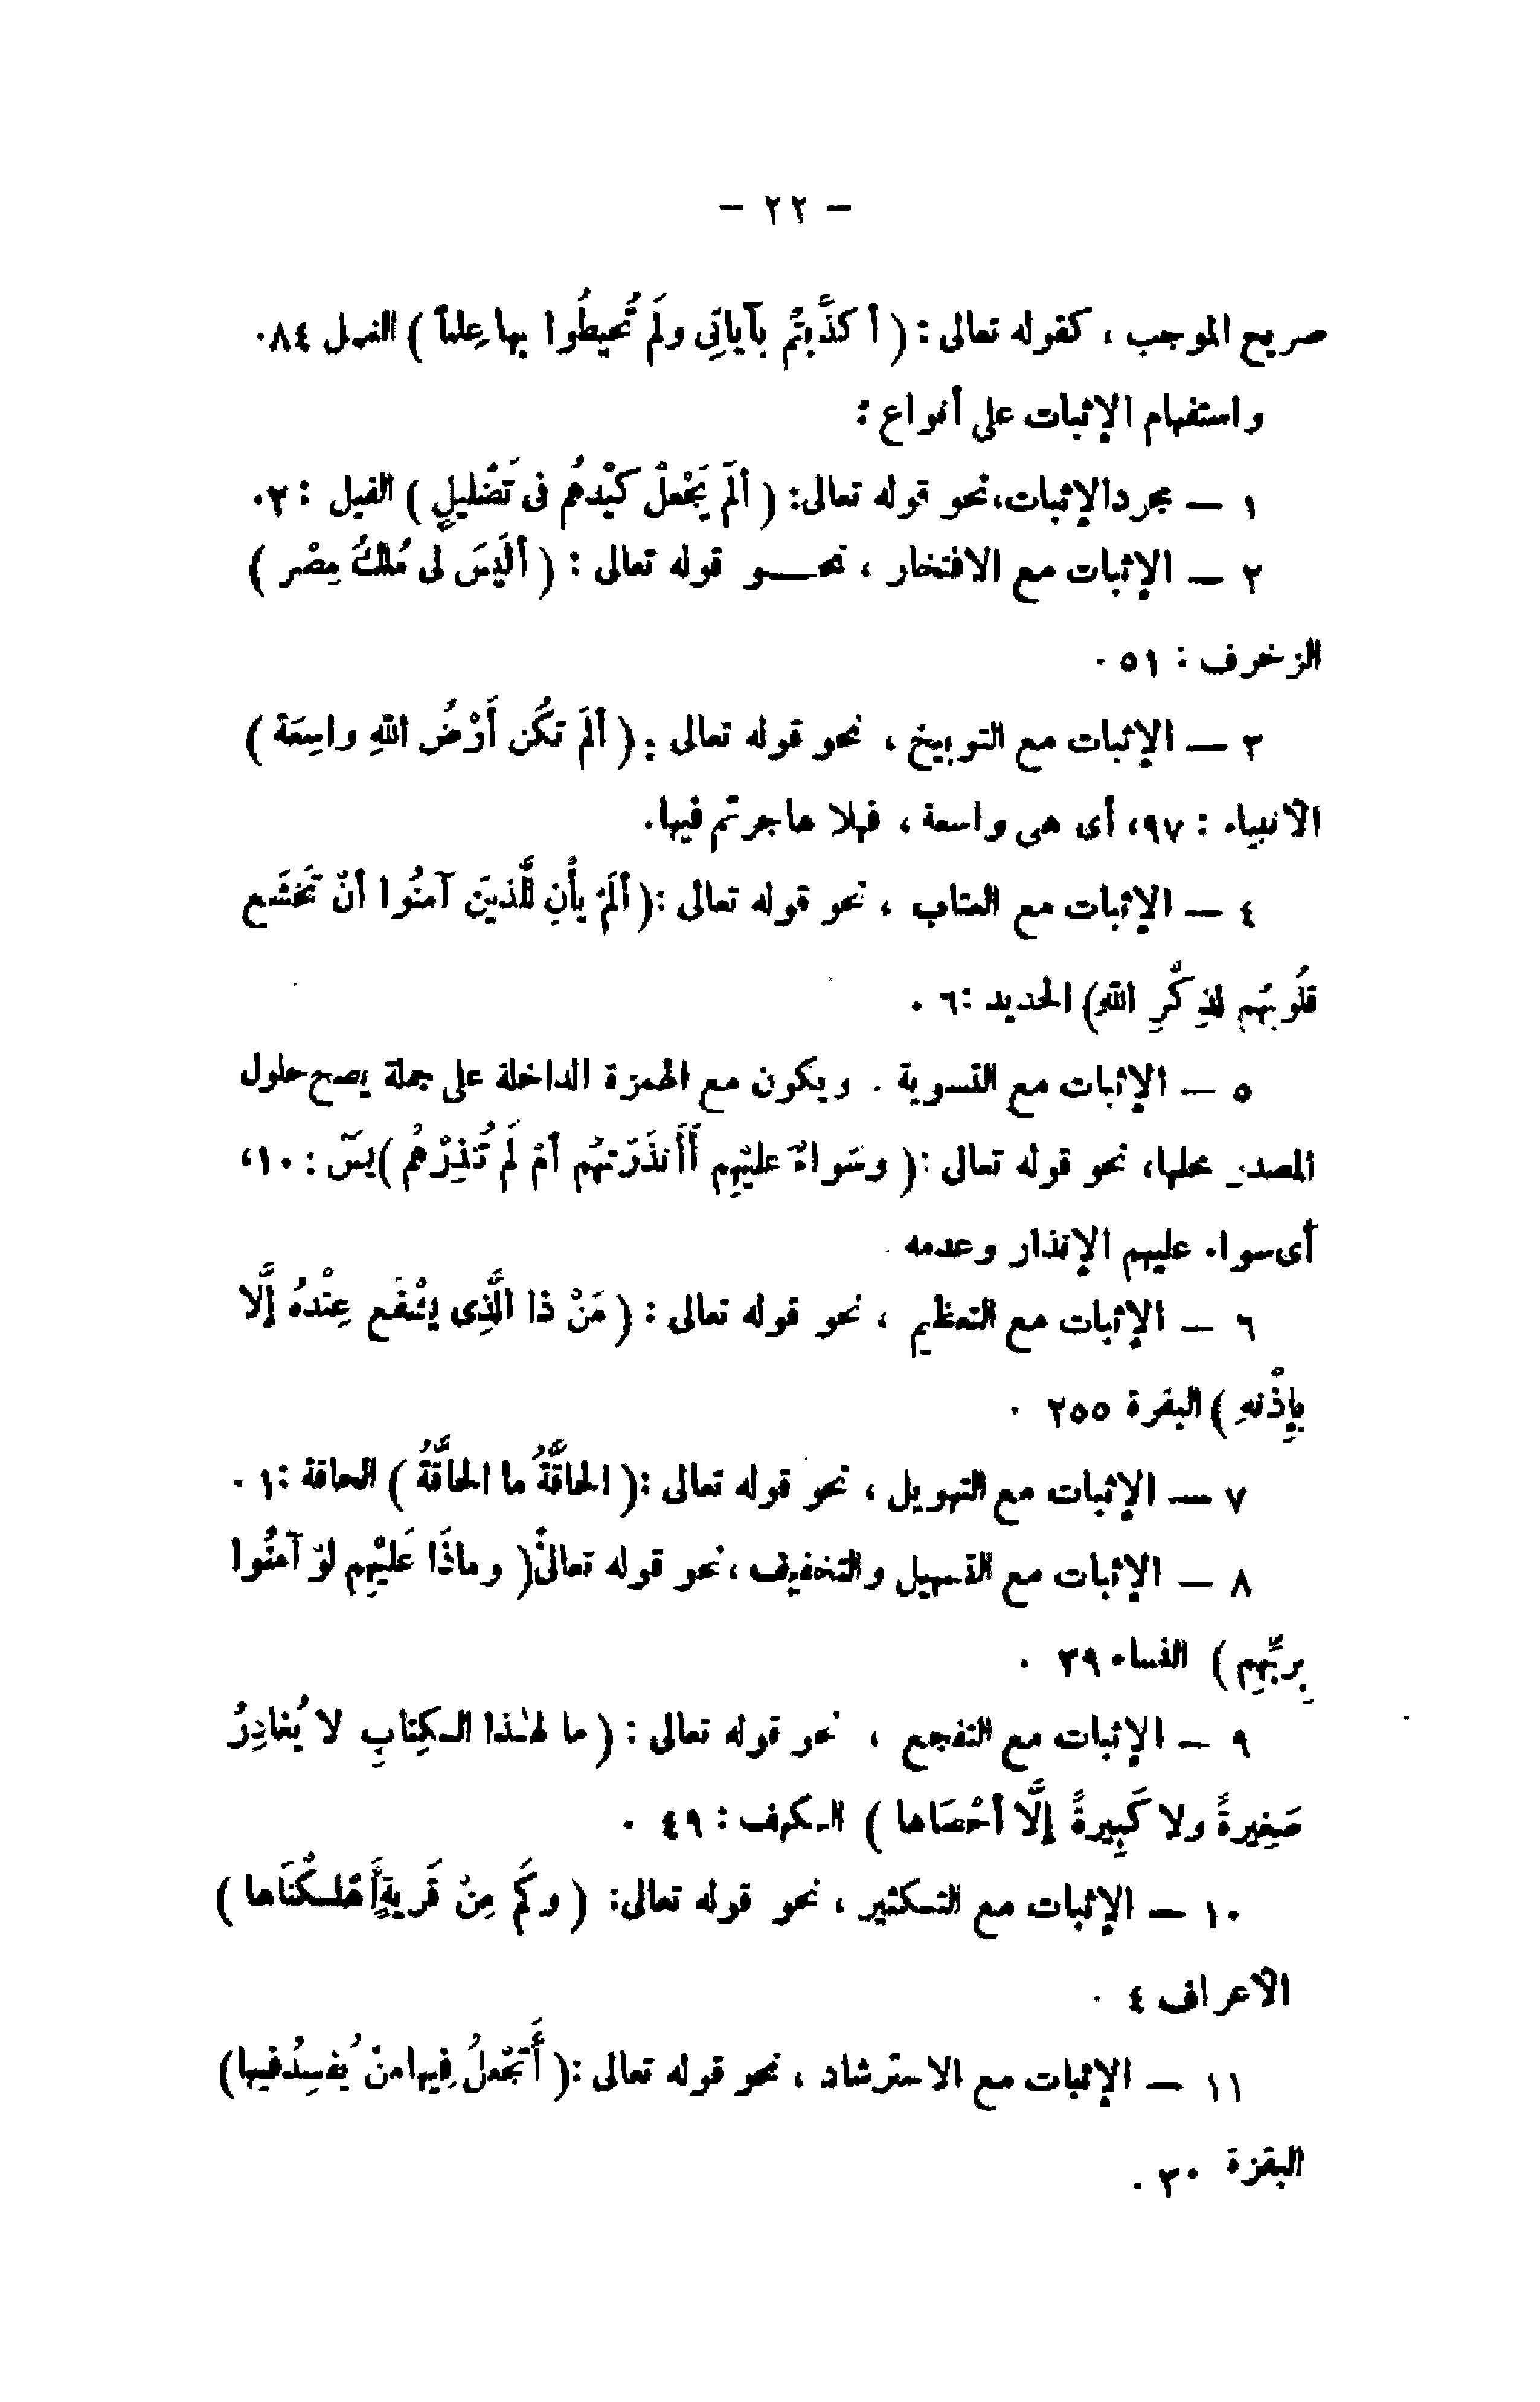 - ٢٢ -
صريح الموجب ، كقوله تعالى : ( أكذَّبتُم بآياتِى ولَم تُحيطُوا بها عِلماً ) النمل ٨٤.
واستفهام الإثبات على أنواع :
١ — مجرد الإثبات، نحو قوله تعالى: ( ألَم يَجْعلْ كَيْدهُم فى تَضْليلٍ ) الفيل : ٢.
٢ — الإثبات مع الافتخار ، نحو قوله تعالى : ( ألَيسَ لى مُلكُ مِصْر )
الزخرف : ٥١ .
٣ — الإثبات مع التوبيخ ، نحو قوله تعالى : ( ألَم تكُن أَرْضُ اللهِ واسِعَة )
الأنبياء : ٩٧، أى هى واسعة ، فهلا هاجرتم فيها.
٤ — الإثبات مع العتاب ، نحو قوله تعالى :( ألَمْ يأْنِ للَّذينَ آمنُوا أنْ تَخْشَع
قلُوبُهم لِذِكْرِ اللهِ) الحديد :٦ .
٥ — الإثبات مع التسوية . ويكون مع الهمزة الداخلة على جملة يصح حلول
المصدر محلها، نحو قوله تعالى :( وسَواءٌ عليْهِم أَأَنذَرْتهُم أمْ لَم تُنذِرْهُم )يسَ : ١٠،
أى سواء عليهم الإنذار وعدمه
٦ — الإثبات مع التعظيم ، نحو قوله تعالى : ( مَنْ ذا الَّذِى يشْفَع عِنْدهُ إلَّا
بإِذْنهِ ) البقرة ٢٥٥ .
٧ — الإثبات مع التهويل ، نحو قوله تعالى :( الحاقَّةُ ما الحاقَّةُ ) الحاقة :١ .
٨ — الإثبات مع التسهيل والتخفيف ، نحو قوله تعالى:( وماذَا عَليْهِم لوْ آمنُوا
بِربِّهِم ) النساء ٣٩ .
٩ — الإثبات مع التفجع ، نحو قوله تعالى : ( ما لهٰذا الكِتابِ لا يُغادِرُ
صَغِيرةً ولا كَبِيرةً إلَّا أحْصَاها ) الكهف : ٤٩ .
١٠ — الإثبات مع التكثير ، نحو قوله تعالى: ( وكَم مِنْ قَريةٍ أَهْلكْنَاها )
الأعراف ٤ .
١١ — الإثبات مع الاسترشاد ، نحو قوله تعالى :( أَتجْعلُ فِيها منْ يُفسِدُ فيها)
البقرة ٣٠ .